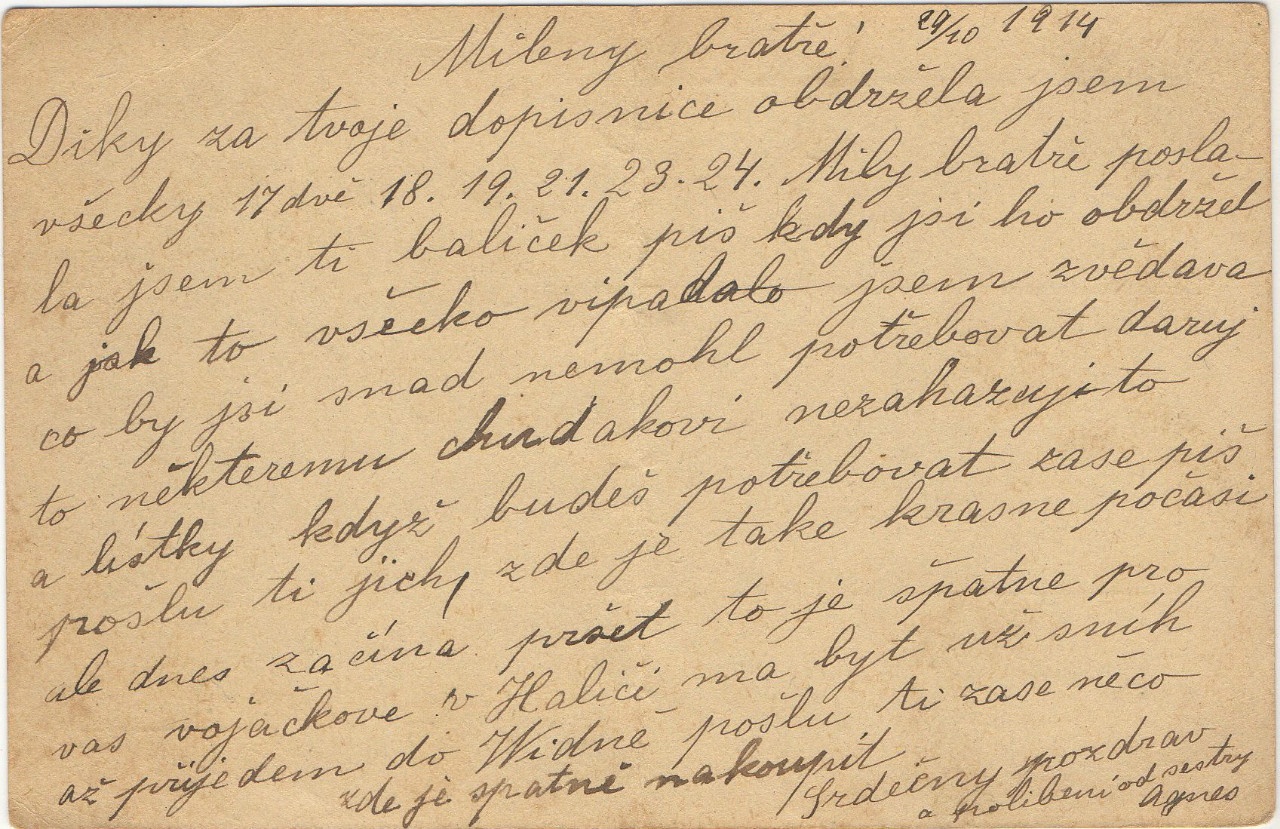 Mileny bratře! 29/10 1914
Diky za tvoje dopisnice obdržela jsem
všecky 17 dvě 18. 19. 21. 23. 24. Mily bratře posla-
la jsem ti baliček piš kdy jsi ho obdržel
a jak to všecko vipadalo jsem zvědava
co by jsi snad nemohl potřebovat daruj
to některemu chudakovi nezahazuj to
a lístky když budeš potřebovat zase piš
pošlu ti jich, zde je take krasne počasi
ale dnes začíná pršet to je špatne pro
vas vojačkove v Haliči ma byt už sníh
až přijedem do Widně pošlu ti zase něco
zde je spatně nakoupit Srdečny pozdrav
a polibení od sestry
Agnes